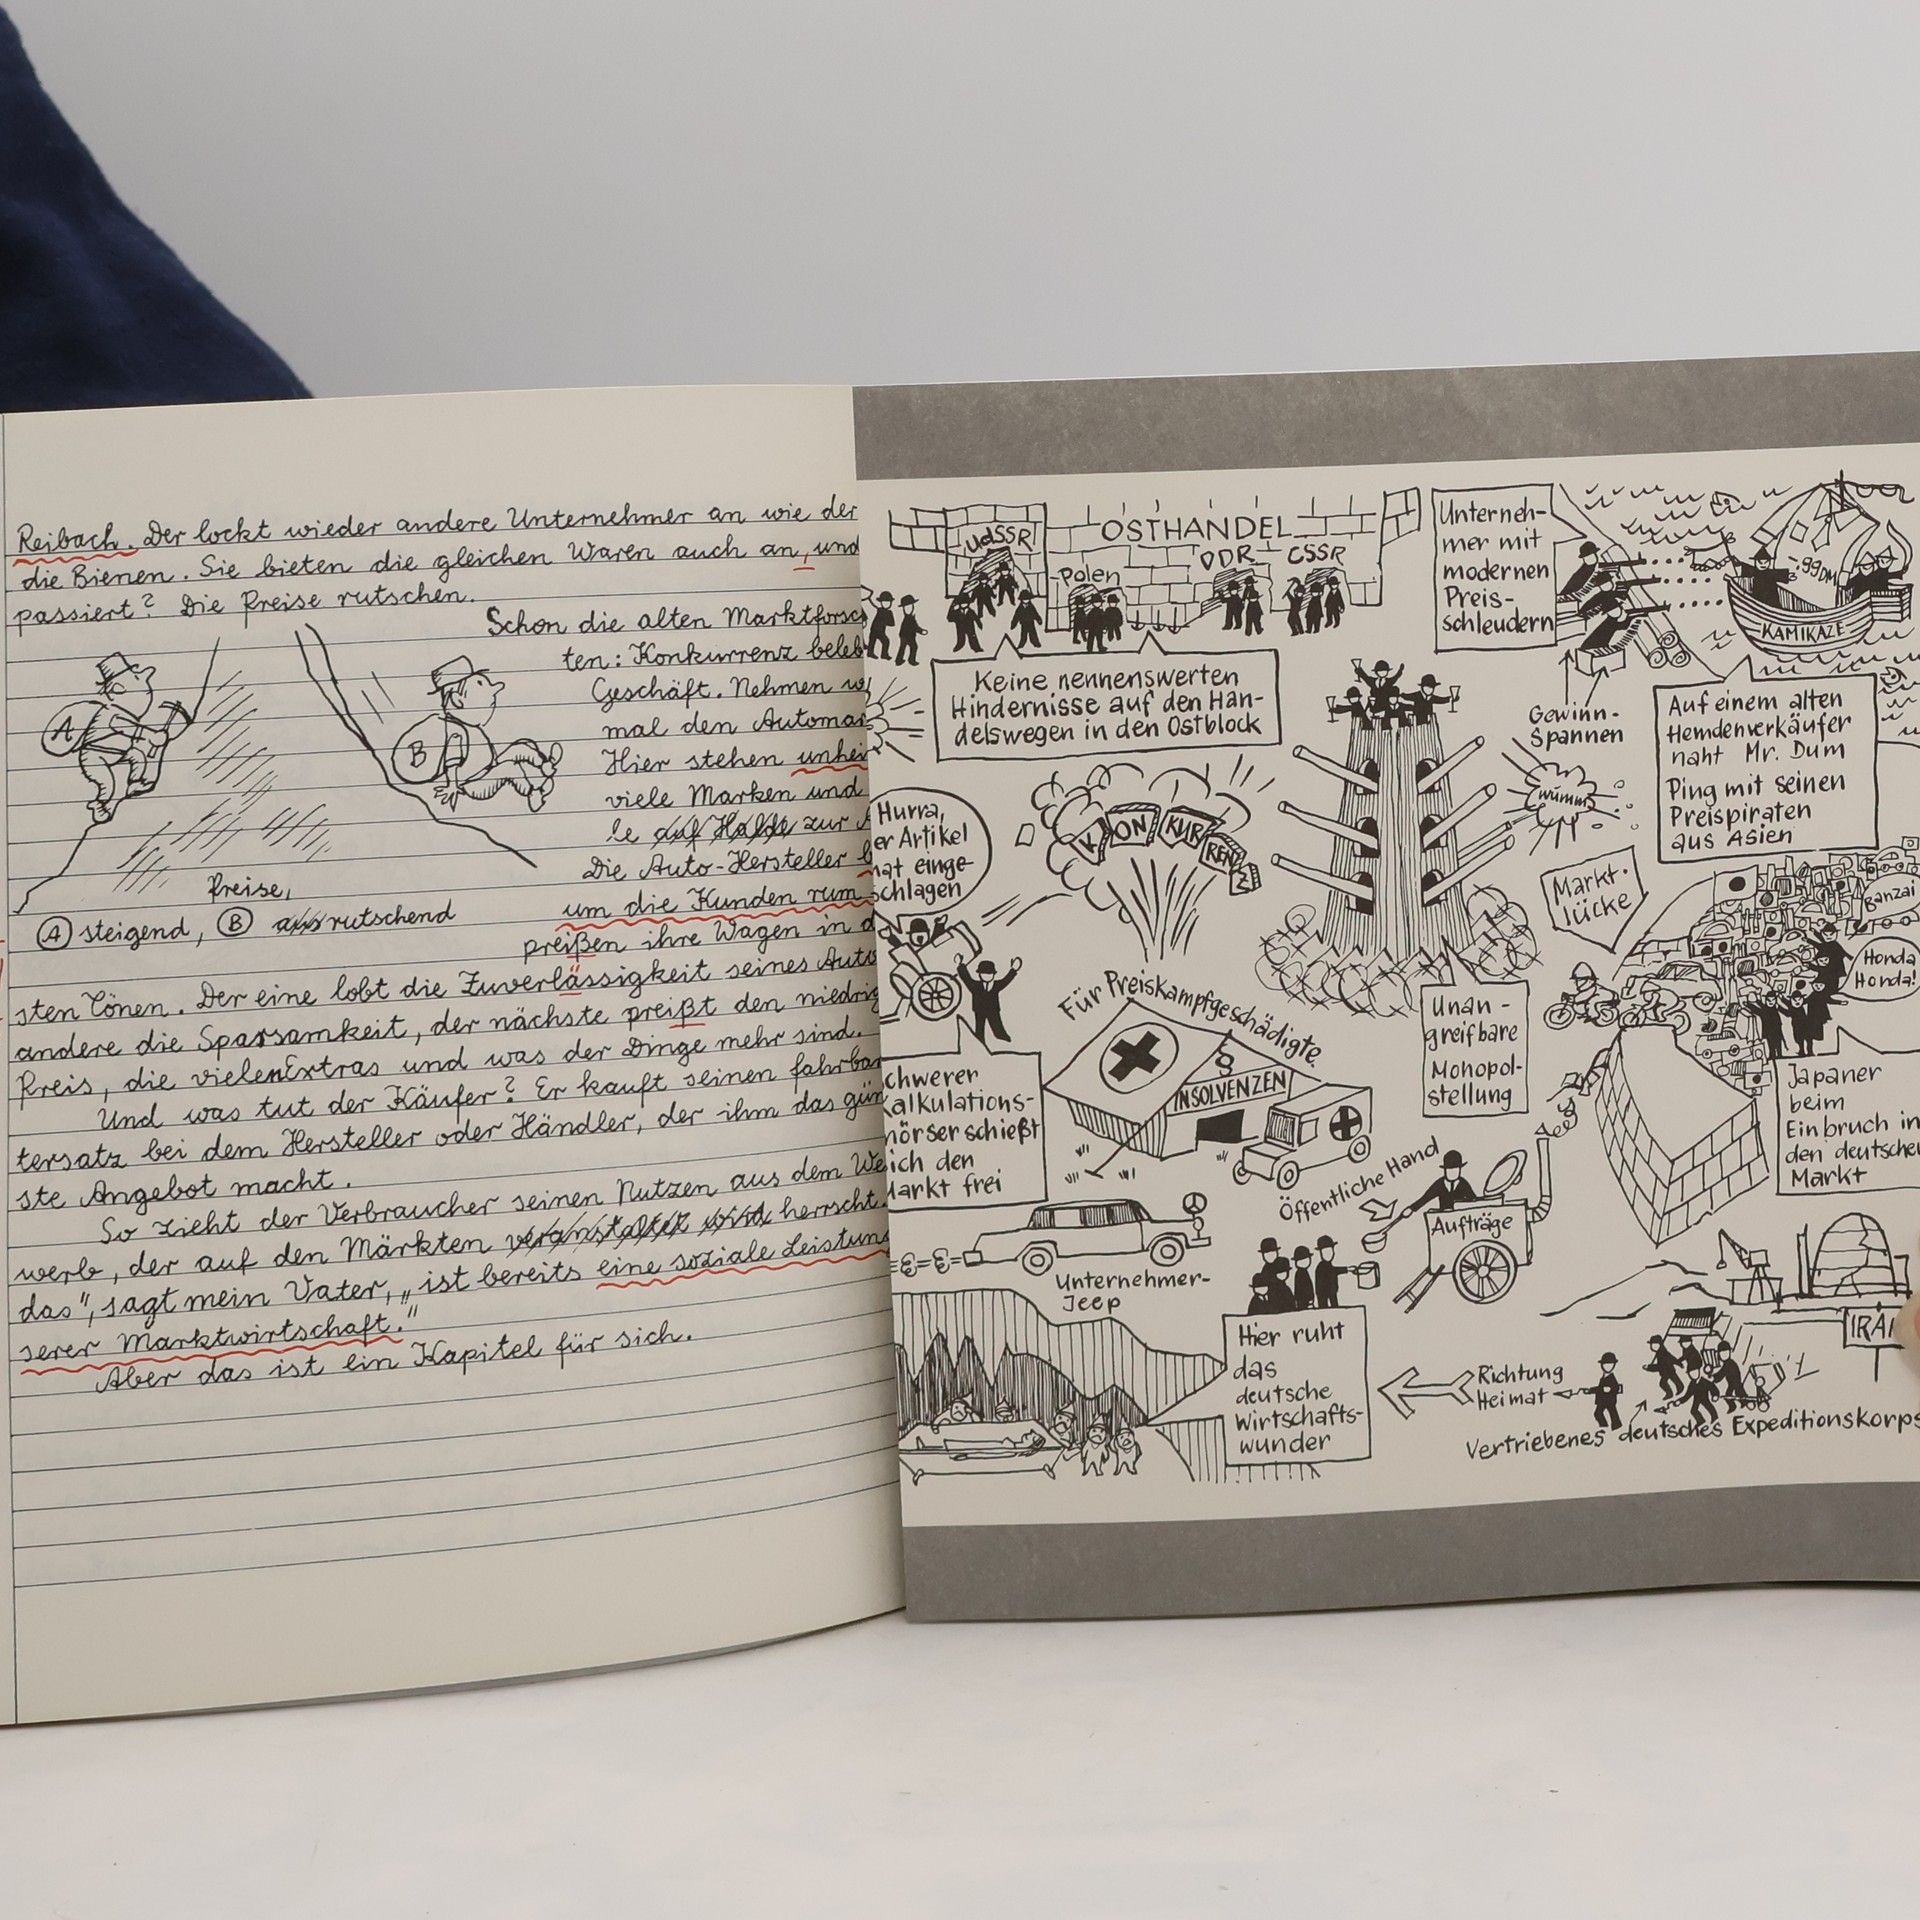 Reibach. Der lockt wieder andere Unternehmer an wie der
die Bienen. Sie bieten die gleichen Waren auch an, und
passiert? Die Preise rutschen.
Schon die alten Marktforsc
ten: Konkurrenz beleb
Geschäft. Nehmen w
mal den Automar
Hier stehen unhei
viele Marken und
le auf Halde zur
Die Auto-Hersteller
um die Kunden rum
preißen ihre Wagen in d
A
B
Preise,
A steigend, B aus rutschend
sten Tönen. Der eine lobt die Zuverlässigkeit seines Auto
andere die Sparsamkeit, der nächste preißt den niedrig
Preis, die vielen Extras und was der Dinge mehr sind.
Und was tut der Käufer? Er kauft seinen fahrbar
tersatz bei dem Hersteller oder Händler, der ihm das gün
ste Angebot macht.
So zieht der Verbraucher seinen Nutzen aus dem We
werb, der auf den Märkten veranstaltet wird herrscht.
das", sagt mein Vater, „ist bereits eine soziale Leistun
serer Marktwirtschaft."
Aber das ist ein Kapitel für sich.
OSTHANDEL
UdSSR
Polen
DDR
CSSR
Keine nennenswerten
Hindernisse auf den Han-
delswegen in den Ostblock
Unterneh-
mer mit
modernen
Preis-
schleudern
Gewinn-
Spannen
-.99DM
KAMIKAZE
Auf einem alten
Hemdenverkäufer
naht Mr. Dum
Ping mit seinen
Preispiraten
aus Asien
Hurra,
er Artikel
hat einge-
schlagen
KONKURRENZ
wumm
Markt-
lücke
Banzai
Honda
Honda!
Für Preiskampfgeschädigte
§
INSOLVENZEN
Unan-
greifbare
Monopol-
stellung
chwerer
Kalkulations-
mörser schießt
ich den
Markt frei
Japaner
beim
Einbruch in
den deutschen
Markt
Öffentliche Hand
Aufträge
Unternehmer-
Jeep
Hier ruht
das
deutsche
Wirtschafts-
wunder
Richtung
Heimat
IRA
Vertriebenes deutsches Expeditionskorps